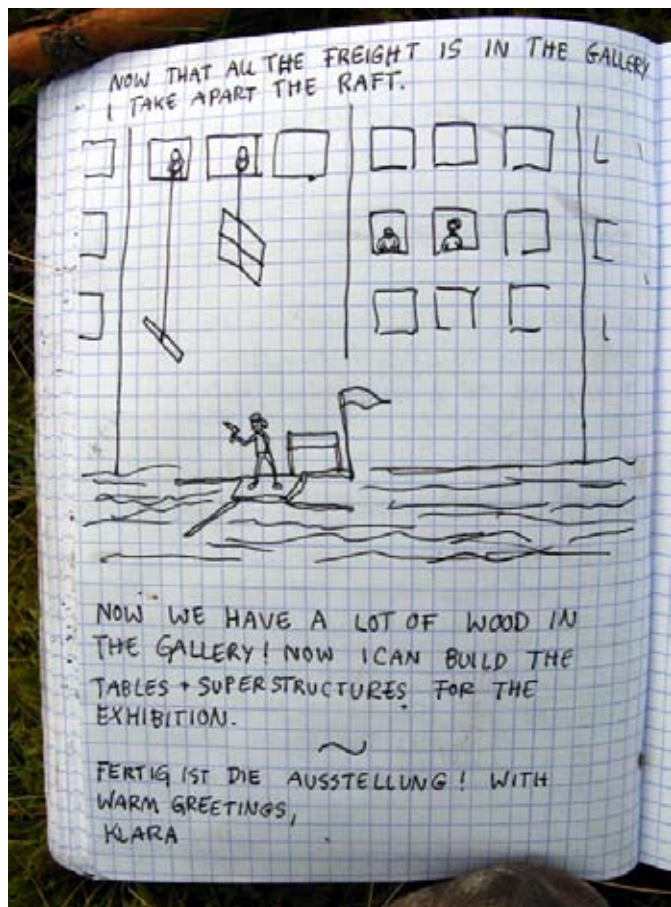 NOW THAT ALL THE FREIGHT IS IN THE GALLERY
I TAKE APART THE RAFT.
NOW WE HAVE A LOT OF WOOD IN
THE GALLERY! NOW I CAN BUILD THE
TABLES + SUPERSTRUCTURES FOR THE
EXHIBITION.
FERTIG IST DIE AUSSTELLUNG! WITH
WARM GREETINGS,
KLARA